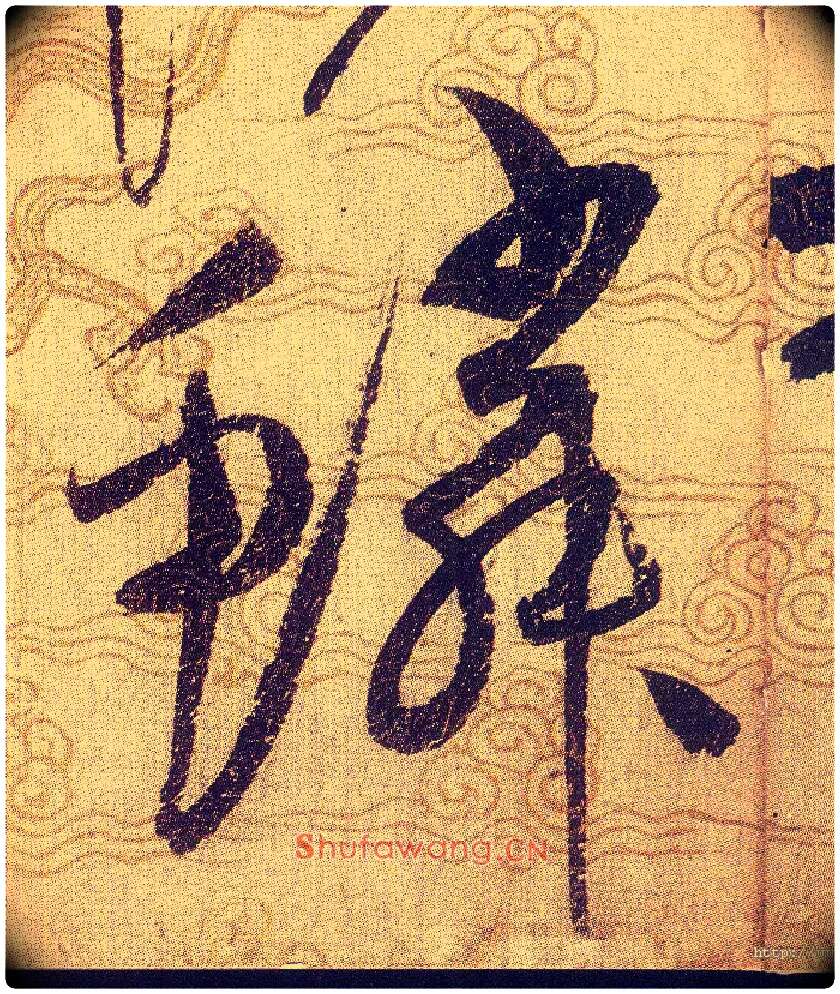 鱗
Shufawang.CN
http: